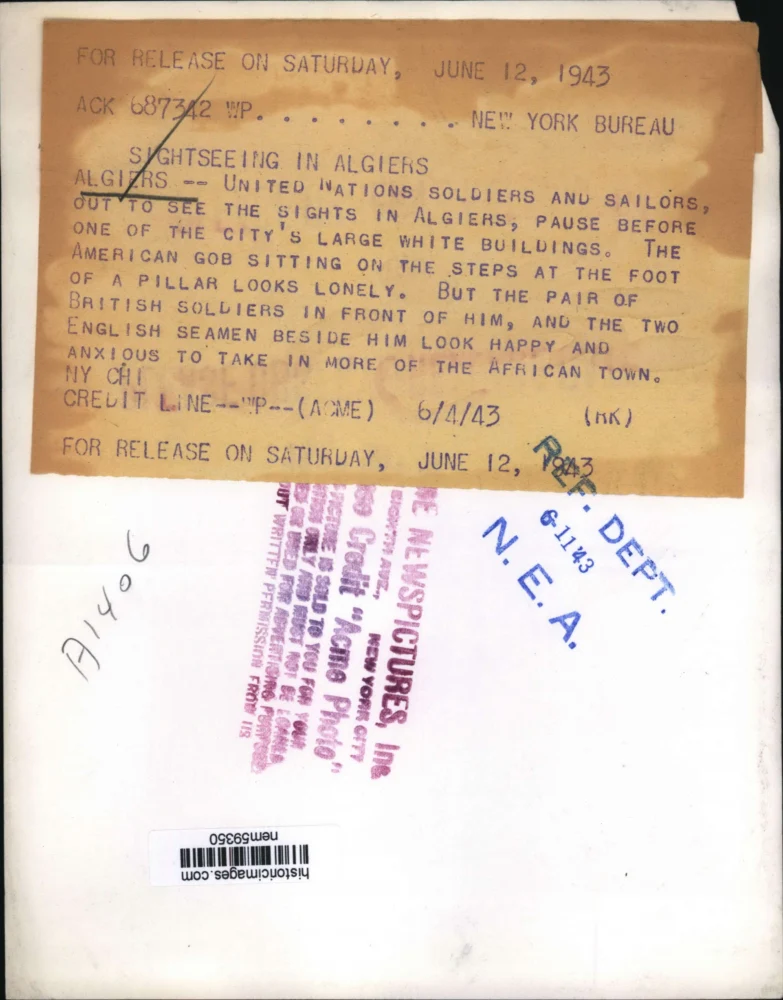 FOR RELEASE ON SATURDAY, JUNE 12, 1943
ACK 687342 WP. . . . . . . . . NEW YORK BUREAU
SIGHTSEEING IN ALGIERS
ALGIERS -- UNITED NATIONS SOLDIERS AND SAILORS,
OUT TO SEE THE SIGHTS IN ALGIERS, PAUSE BEFORE
ONE OF THE CITY'S LARGE WHITE BUILDINGS. THE
AMERICAN GOB SITTING ON THE STEPS AT THE FOOT
OF A PILLAR LOOKS LONELY. BUT THE PAIR OF
BRITISH SOLDIERS IN FRONT OF HIM, AND THE TWO
ENGLISH SEAMEN BESIDE HIM LOOK HAPPY AND
ANXIOUS TO TAKE IN MORE OF THE AFRICAN TOWN.
NY CHI
CREDIT LINE--WP--(ACME) 6/4/43 (HK)
FOR RELEASE ON SATURDAY, JUNE 12, 1943
REF. DEPT.
6-1143
N. E. A.
ME NEWSPICTURES, Inc
EIGHTH AVE., NEW YORK CITY
Credit "Acme Photo"
PICTURE IS SOLD TO YOU FOR YOUR
ONLY AND MUST NOT BE LOANED
OR USED FOR ADVERTISING PURPOSES
OUT WRITTEN PERMISSION FROM US
A1406
historicimages.com
nem59350